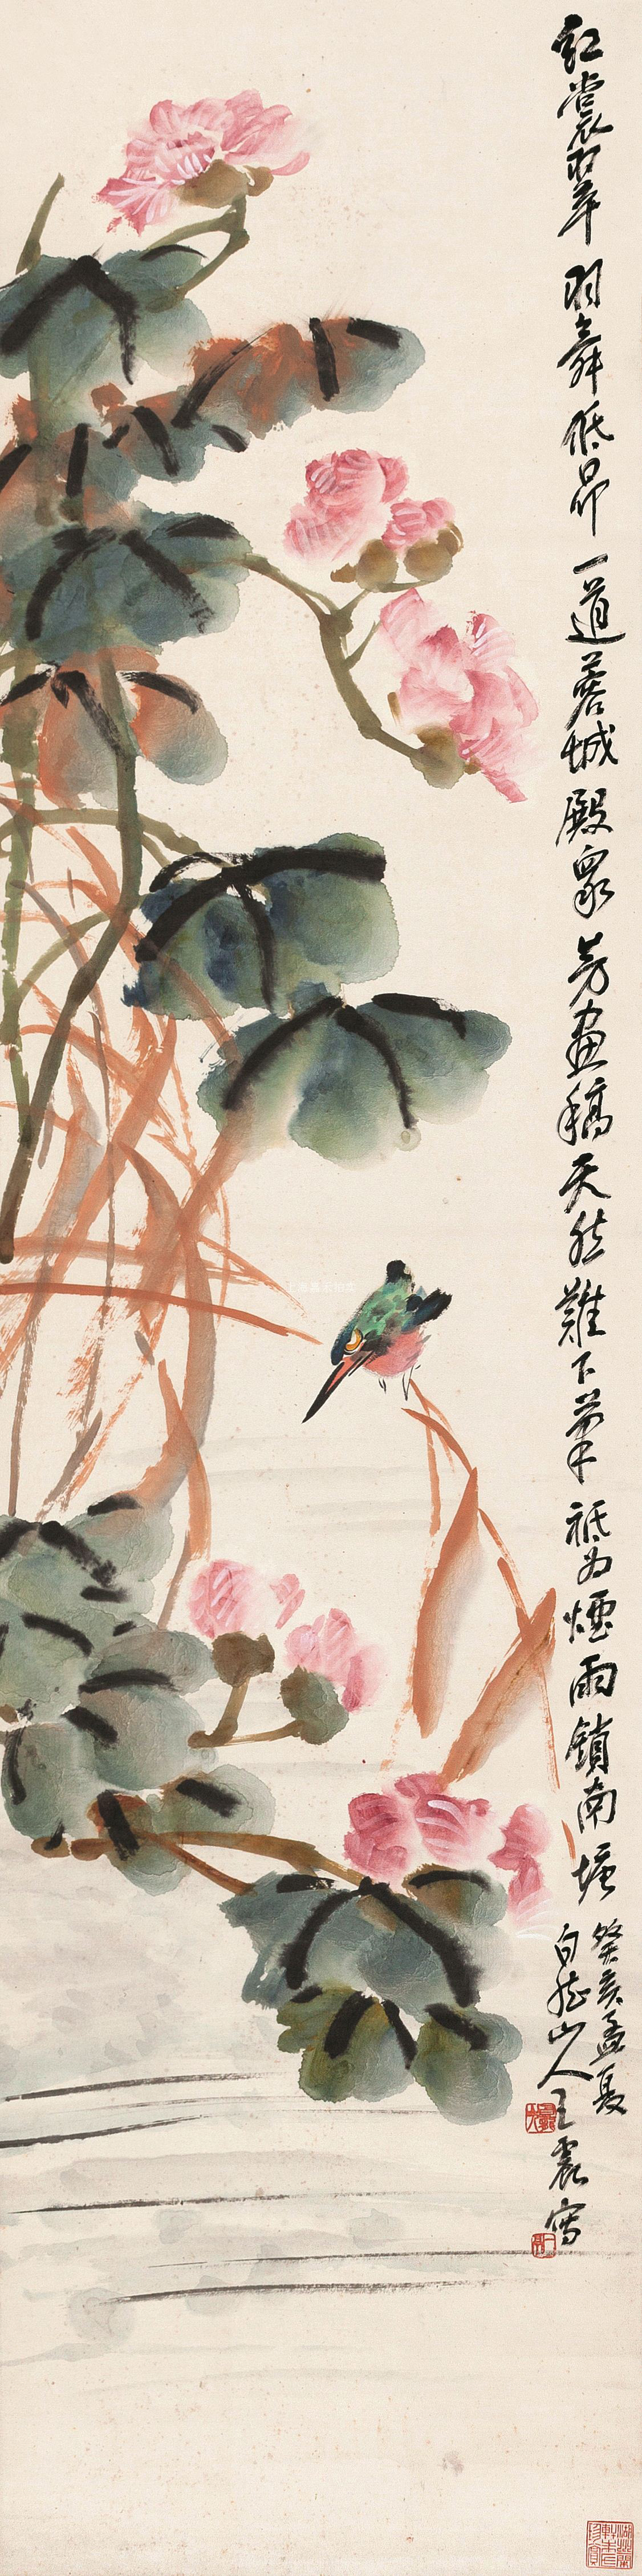 紅裳翠羽舞低昂一道蓉城殿众芳畫稿天然難下筆祗为煙雨鎖南塘
癸亥孟夏
白龍山人王震寫